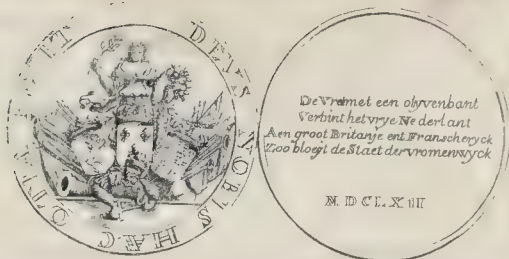 DEVS NOBIS HÆC OTIA
De Vre met een olyvenbant
Verbint het vrye Nederlant
Aen groot Britanje ent Franscheryck
Zoo bloeyt de Staet der vromen wyck
M.DCLXIII